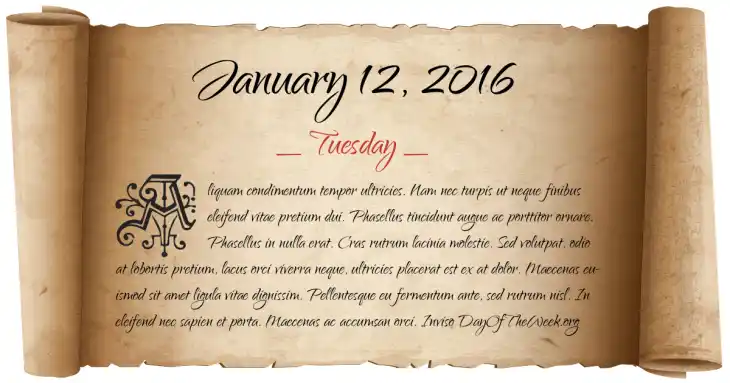 January 12, 2016
_ Tuesday _
Aliquam condimentum tempor ultricies. Nam nec turpis ut neque finibus
eleifend vitae pretium dui. Phasellus tincidunt augue ac porttitor ornare.
Phasellus in nulla erat. Cras rutrum lacinia molestie. Sed volutpat, odio
at lobortis pretium, lacus orci viverra neque, ultricies placerat est ex at dolor. Maecenas eu-
ismod sit amet ligula vitae dignissim. Pellentesque eu fermentum ante, sed rutrum nisl. In
eleifend nec sapien et porta. Maecenas ac accumsan orci. Inviso DayOfTheWeek.org